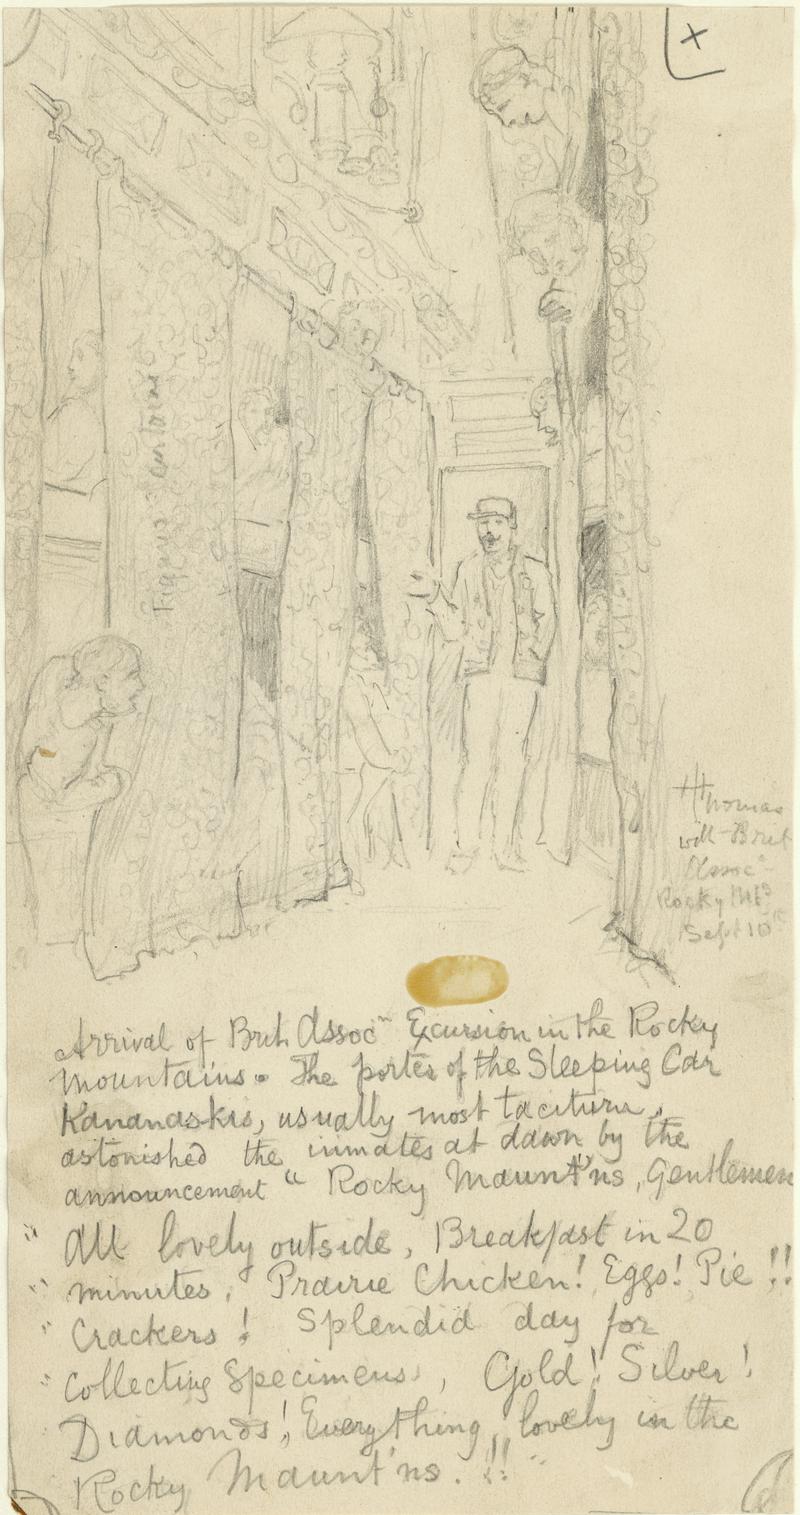 x
H Thomas
with Brit
Assocn
Rocky Mts
Sept 10th
Arrival of Brit Assocn Excursion in the Rocky
Mountains. The porter of the Sleeping Car
Kananaskis, usually most taciturn,
astonished the inmates at dawn by the
announcement " Rocky Maunt'ns, Gentlemen
" All lovely outside, Breakfast in 20
" minutes, Prairie Chicken! Eggs! Pie!!
" Crackers! Splendid day for
" Collecting Specimens, Gold! Silver!
Diamonds! Everything lovely in the
Rocky Maunt'ns.!! "